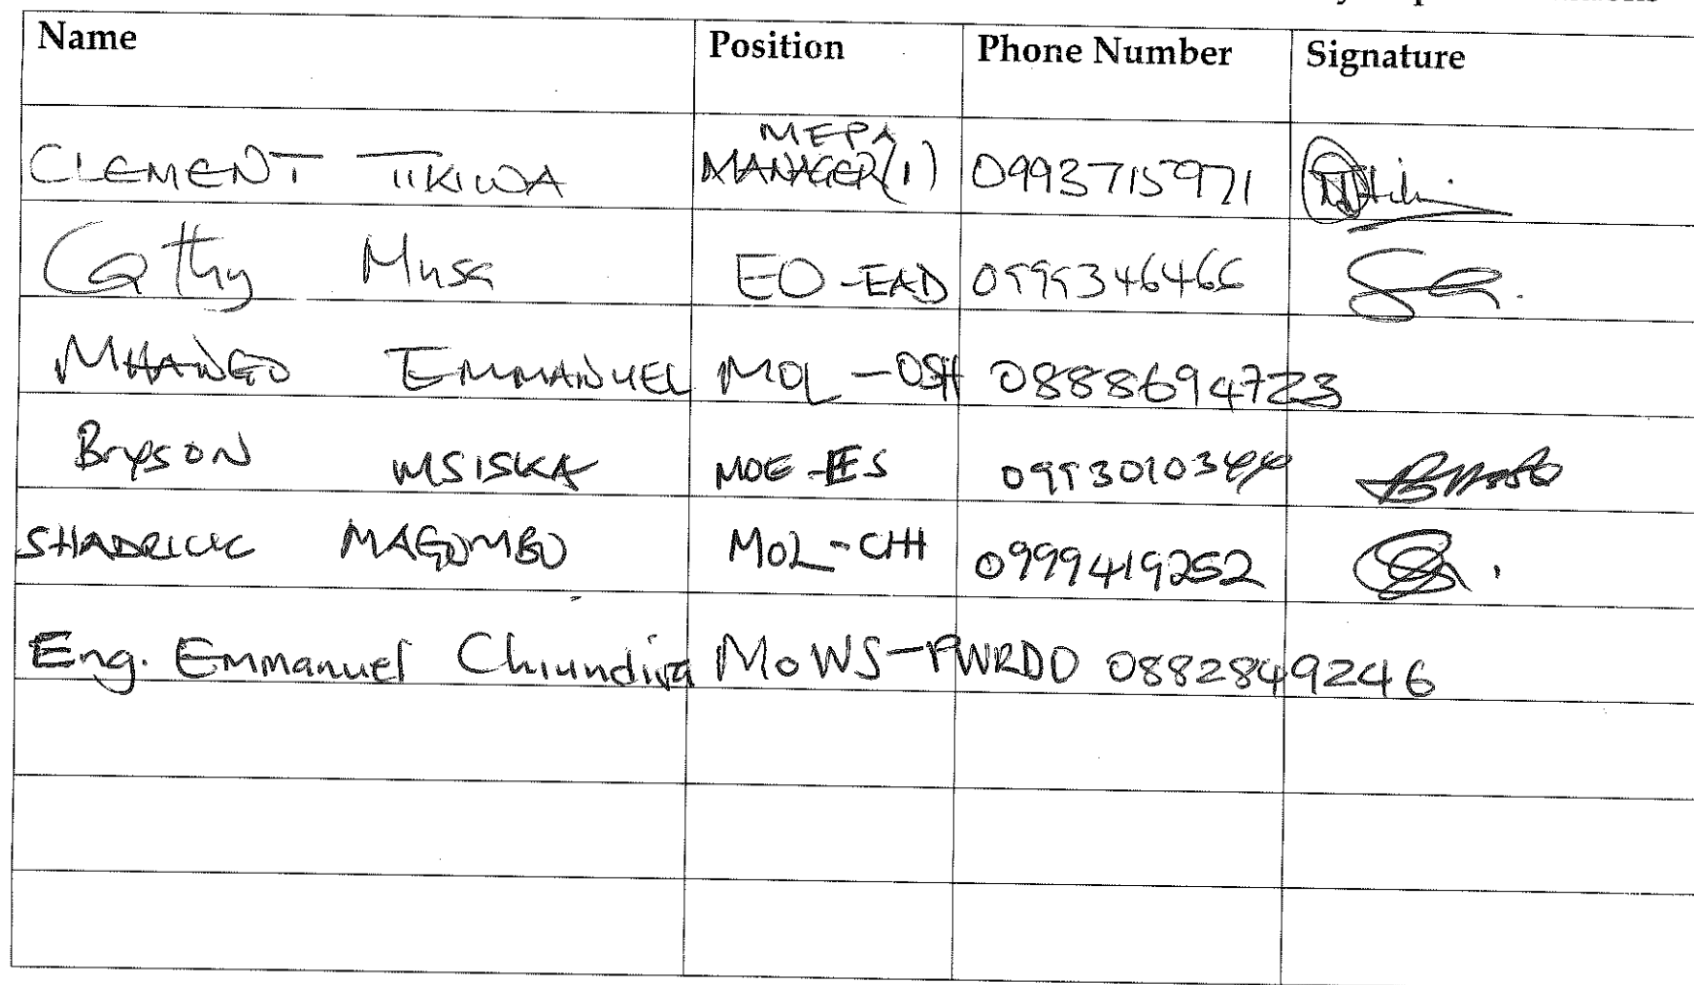 Name Position Phone Number Signature
MEPA
CLEMENT TIKIWA MANAGER(1) 0993715971
Cathy Musa EO-EAD 0999346466
MHANGO EMMANUEL MOL-OSH 0888694723
Bryson MSISKA MOE-ES 0993010344
SHADRICK MAGOMBO MOL-CHH 0999419252
Eng. Emmanuel Chiundira MoWS-PWRDO 0882849246